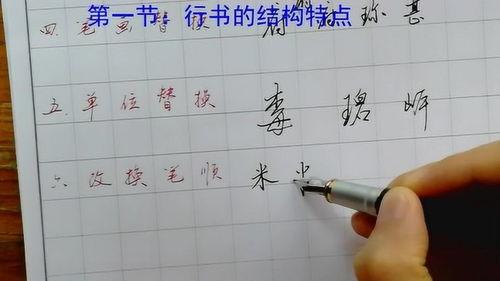 第一节、行书的结构特点
四.笔画替换 珎 甚
五.单位替换 毒 碧 岍
六.改换笔顺 米